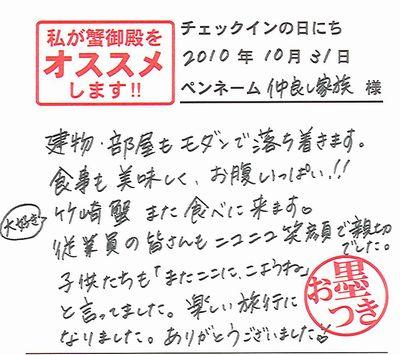 私が蟹御殿を
オススメ
します!!
チェックインの日にち
2010 年 10 月 31 日
ペンネーム 仲良し家族 様
建物・部屋もモダンで落ち着きます。
食事も美味しく、お腹いっぱい!!
大好き
竹崎蟹 また食べに来ます♡
従業員の皆さんもニコニコ笑顔で親切
でした。
子供たちも「またここに、こようね」
と言ってました。楽しい旅行に
なりました。ありがとうございました♡
お墨
つき